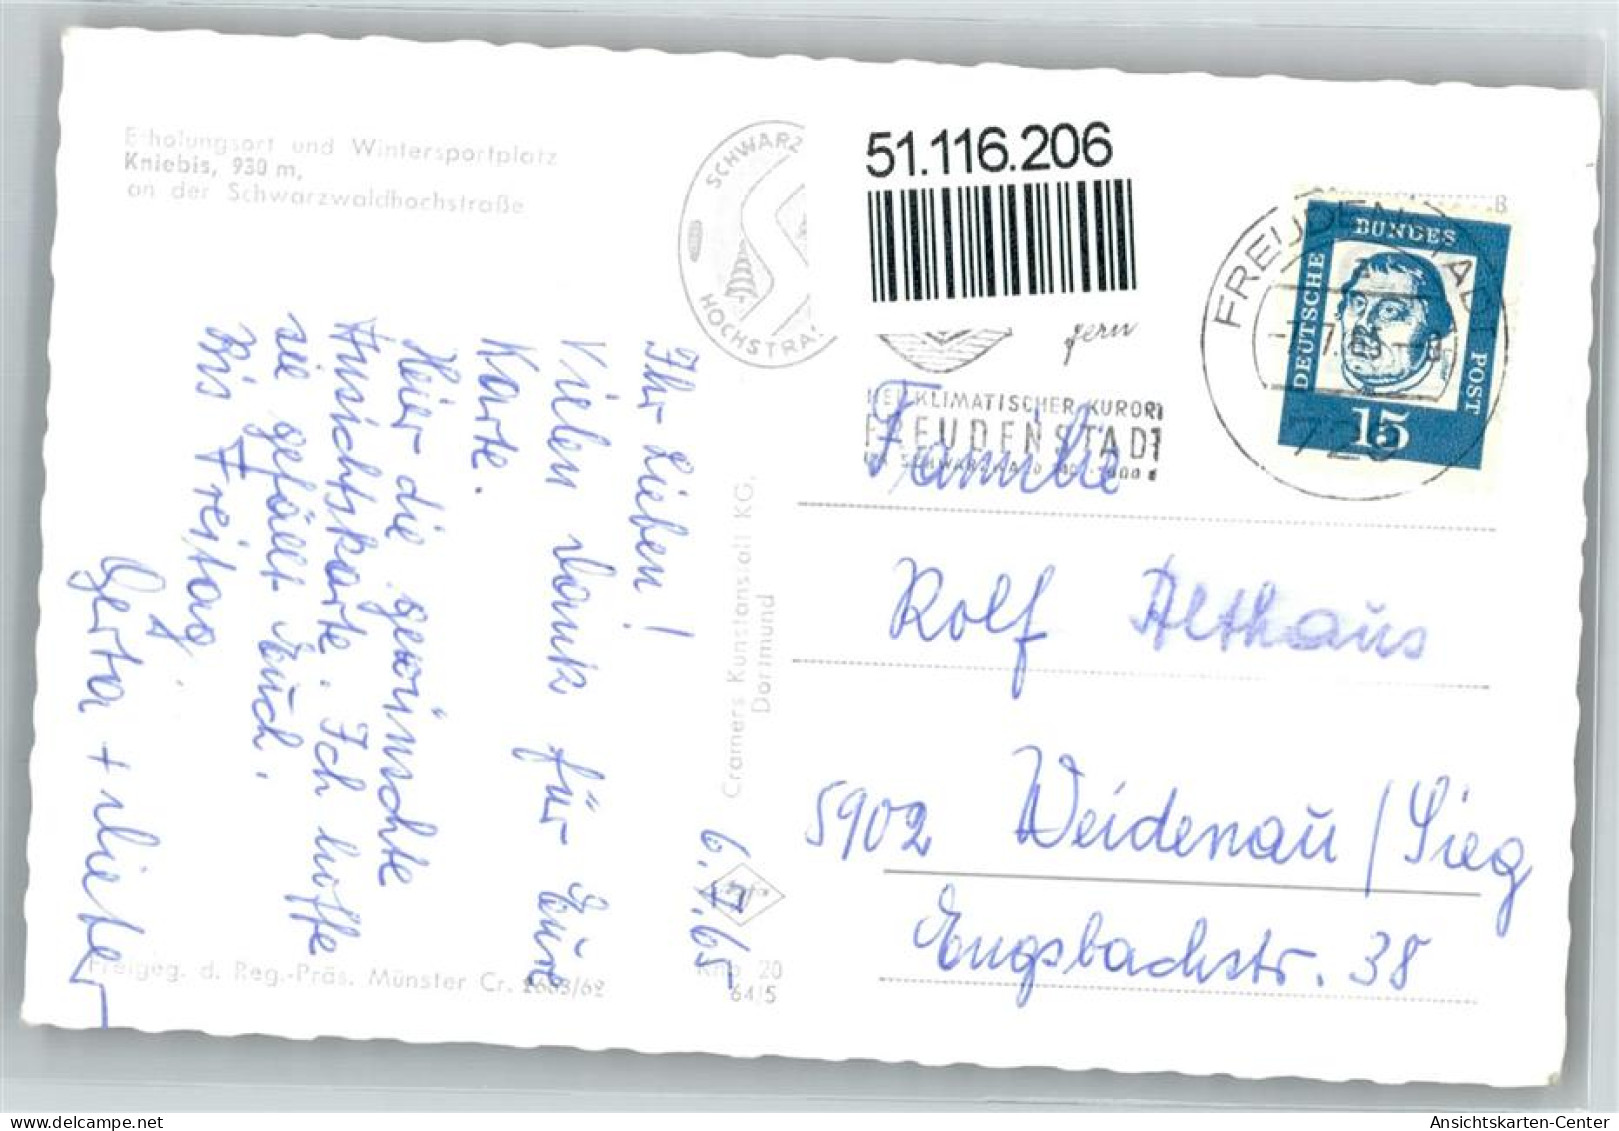 Erholungsort und Wintersportplatz
Kniebis, 930 m,
an der Schwarzwaldhochstraße
6.7.65
Ihr Lieben!
Vielen Dank für Eure
Karte.
Hier die gewünschte
Ansichtskarte. Ich hoffe
sie gefällt Euch.
Bis Freitag
Gerta + Dieter
Cramers Kunstanstalt KG,
Dortmund
Freigeg. d. Reg.-Präs. Münster Cr. 2603/62
Knb 20
64/5
SCHWARZ
HOCHSTRA
51.116.206
gern
HEILKLIMATISCHER KURORT
FREUDENSTADT
FREUDENSTADT
DEUTSCHE
BUNDES
POST
15
Familie
Rolf Althaus
5902 Weidenau/Sieg
Engsbachstr. 38
Ansichtskarten-Center